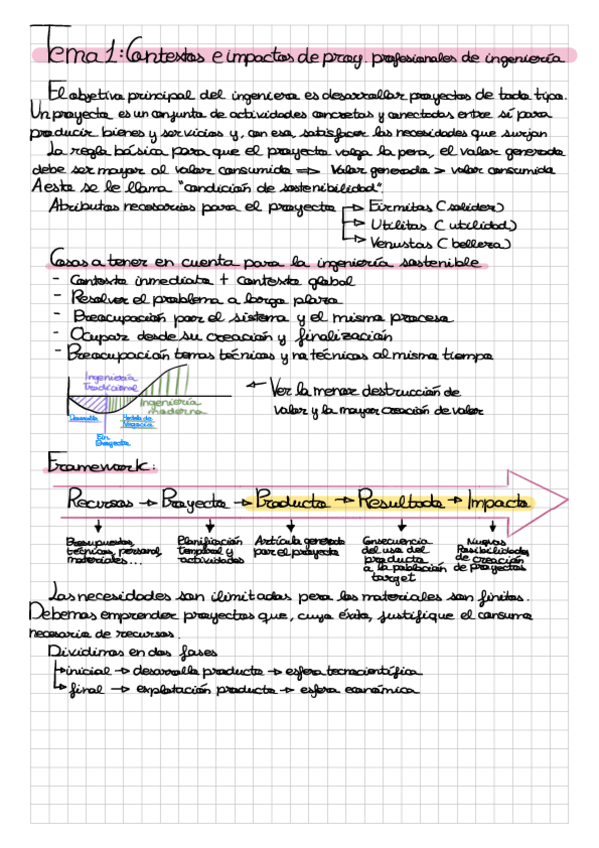 Tema 1: Contextos e impactos de proy. profesionales de ingeniería
El objetivo principal del ingeniero es desarrollar proyectos de todo tipo.
Un proyecto es un conjunto de actividades concretas y conectadas entre sí para
producir bienes y servicios y, con eso, satisfacer las necesidades que surjan
La regla básica para que el proyecto valga la pena, el valor generado
debe ser mayor al valor consumido => Valor generado > valor consumido
A esto se le llama "condición de sostenibilidad".
Atributos necesarios para el proyecto → Firmitas (solidez)
→ Utilitas (utilidad)
→ Venustas (belleza)
Cosas a tener en cuenta para la ingeniería sostenible
- Contexto inmediato + contexto global
- Resolver el problema a largo plazo
- Preocupación por el sistema y el mismo proceso
- Ocupar desde su creación y finalización
- Preocupación temas técnicos y no técnicos al mismo tiempo
Ingeniería
Tradicional
Ingeniería
moderna
Desarrollo
Modelo de
Negocio
Fin
Proyecto
← Ver la menor destrucción de
valor y la mayor creación de valor
Framework:
Recursos → Proyecto → Producto → Resultado → Impacto
Presupuestos,
técnicos, personal,
materiales...
Planificación
temporal y
actividades
Artículo generado
por el proyecto
Consecuencia
del uso del
producto
a la población
target
Nuevas
Posibilidades
de creación
de proyectos
Las necesidades son ilimitadas pero los materiales son finitos.
Debemos emprender proyectos que, cuyo éxito, justifique el consumo
necesario de recursos.
Dividimos en dos fases
→ inicial → desarrollo producto → esfera tecnocientífica
→ final → explotación producto → esfera económica